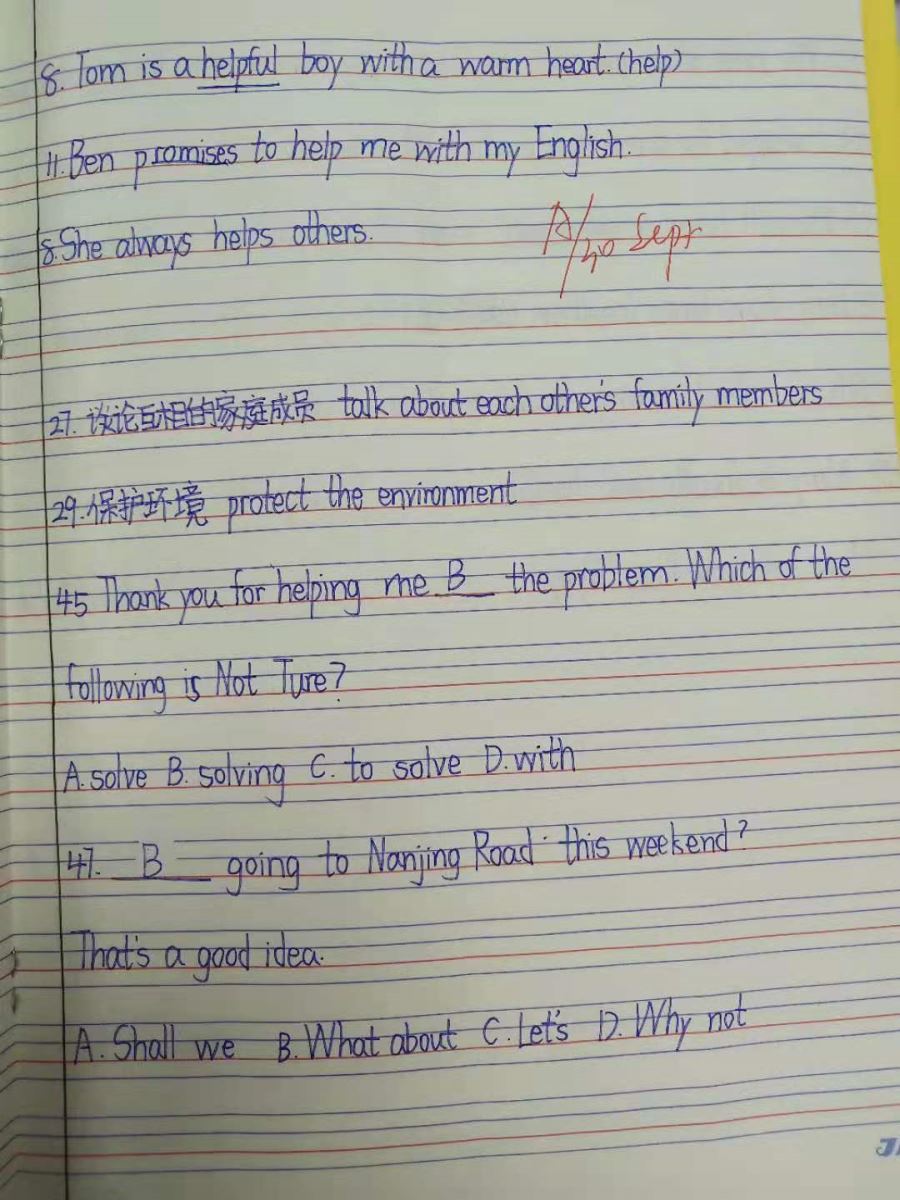 8. Tom is a helpful boy with a warm heart. (help)
11. Ben promises to help me with my English.
8. She always helps others.
A/30 Sept
27. 谈论互相的家庭成员 talk about each other's family members
29. 保护环境 protect the environment
45 Thank you for helping me B the problem. Which of the
following is Not Ture?
A. solve B. solving C. to solve D. with
47. B going to Nanjing Road this weekend?
That's a good idea.
A. Shall we B. What about C. Let's D. Why not